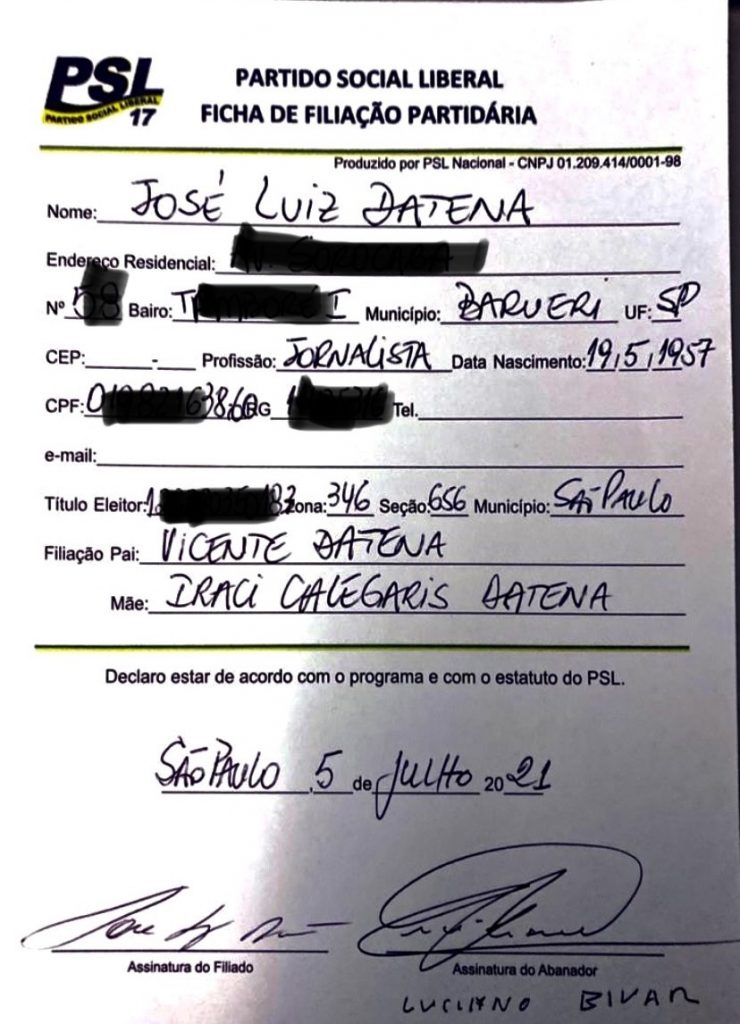 PSL
PARTIDO SOCIAL LIBERAL
17
PARTIDO SOCIAL LIBERAL
FICHA DE FILIAÇÃO PARTIDÁRIA
Produzido por PSL Nacional - CNPJ 01.209.414/0001-98
Nome: JOSÉ LUIZ DATENA
Endereço Residencial:
Nº Bairo: Município: BARUERI UF: SP
CEP: - Profissão: JORNALISTA Data Nascimento: 19,5,1957
CPF: RG Tel.
e-mail:
Título Eleitor: Zona: 346 Seção: 656 Município: SÃO PAULO
Filiação Pai: VICENTE DATENA
Mãe: IRACI CALEGARIS DATENA
Declaro estar de acordo com o programa e com o estatuto do PSL.
SÃO PAULO, 5 de JULHO 2021
Assinatura do Filiado Assinatura do Abanador
LUCIANO BIVAR